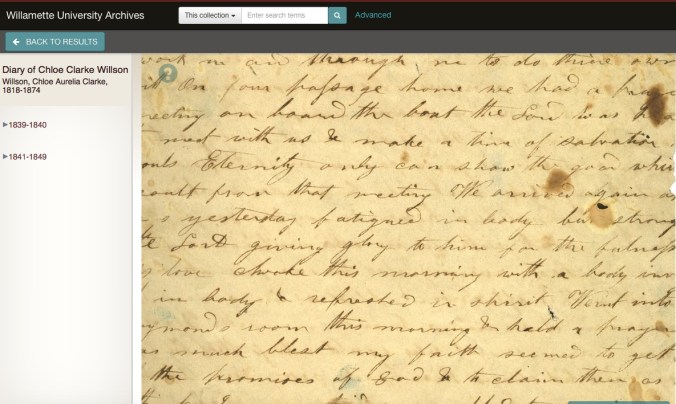 Willamette University Archives
This collection
Enter search terms
Advanced
BACK TO RESULTS
Diary of Chloe Clarke Willson
Willson, Chloe Aurelia Clarke,
1818-1874
1839-1840
1841-1849
?
work in and through me to do thine own
On four passage home we had a
on board the boat the Lord was
meet with us & make a time of salvation
Eternity only can show the good
result from that meeting We arrived again
yesterday fatigued in body but strong
Lord giving glory to him for the fulness
love Awoke this morning with a body
in body & refreshed in spirit Went into
room this morning & held a prayer
much blest my faith seemed to get
the promises of God & to claim them as